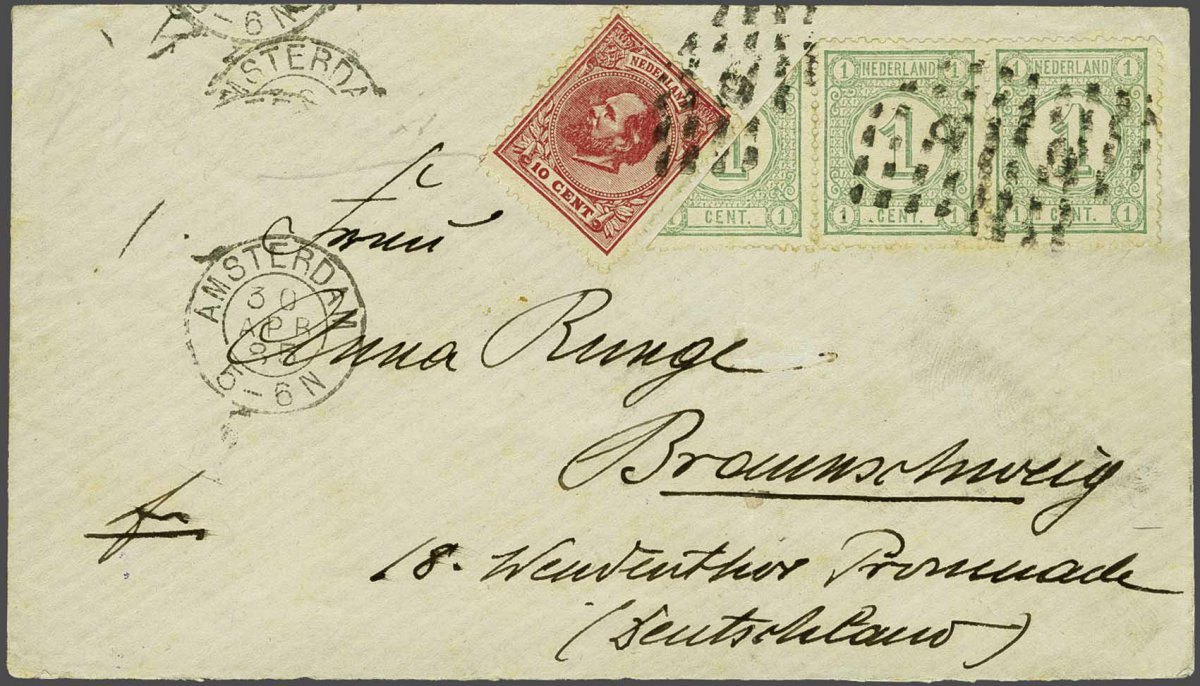 6 N
AMSTERDA
NEDERLAND
10 CENT
CENT. 1
1 NEDERLAND 1
1
1 CENT. 1
1 NEDERLAND 1
1
1 CENT. 1
Frau
AMSTERDAM
30
APR
5-6N
Anna Runge
Braunschweig
fr
18. Wendenthor Promenade
(Deutschland)